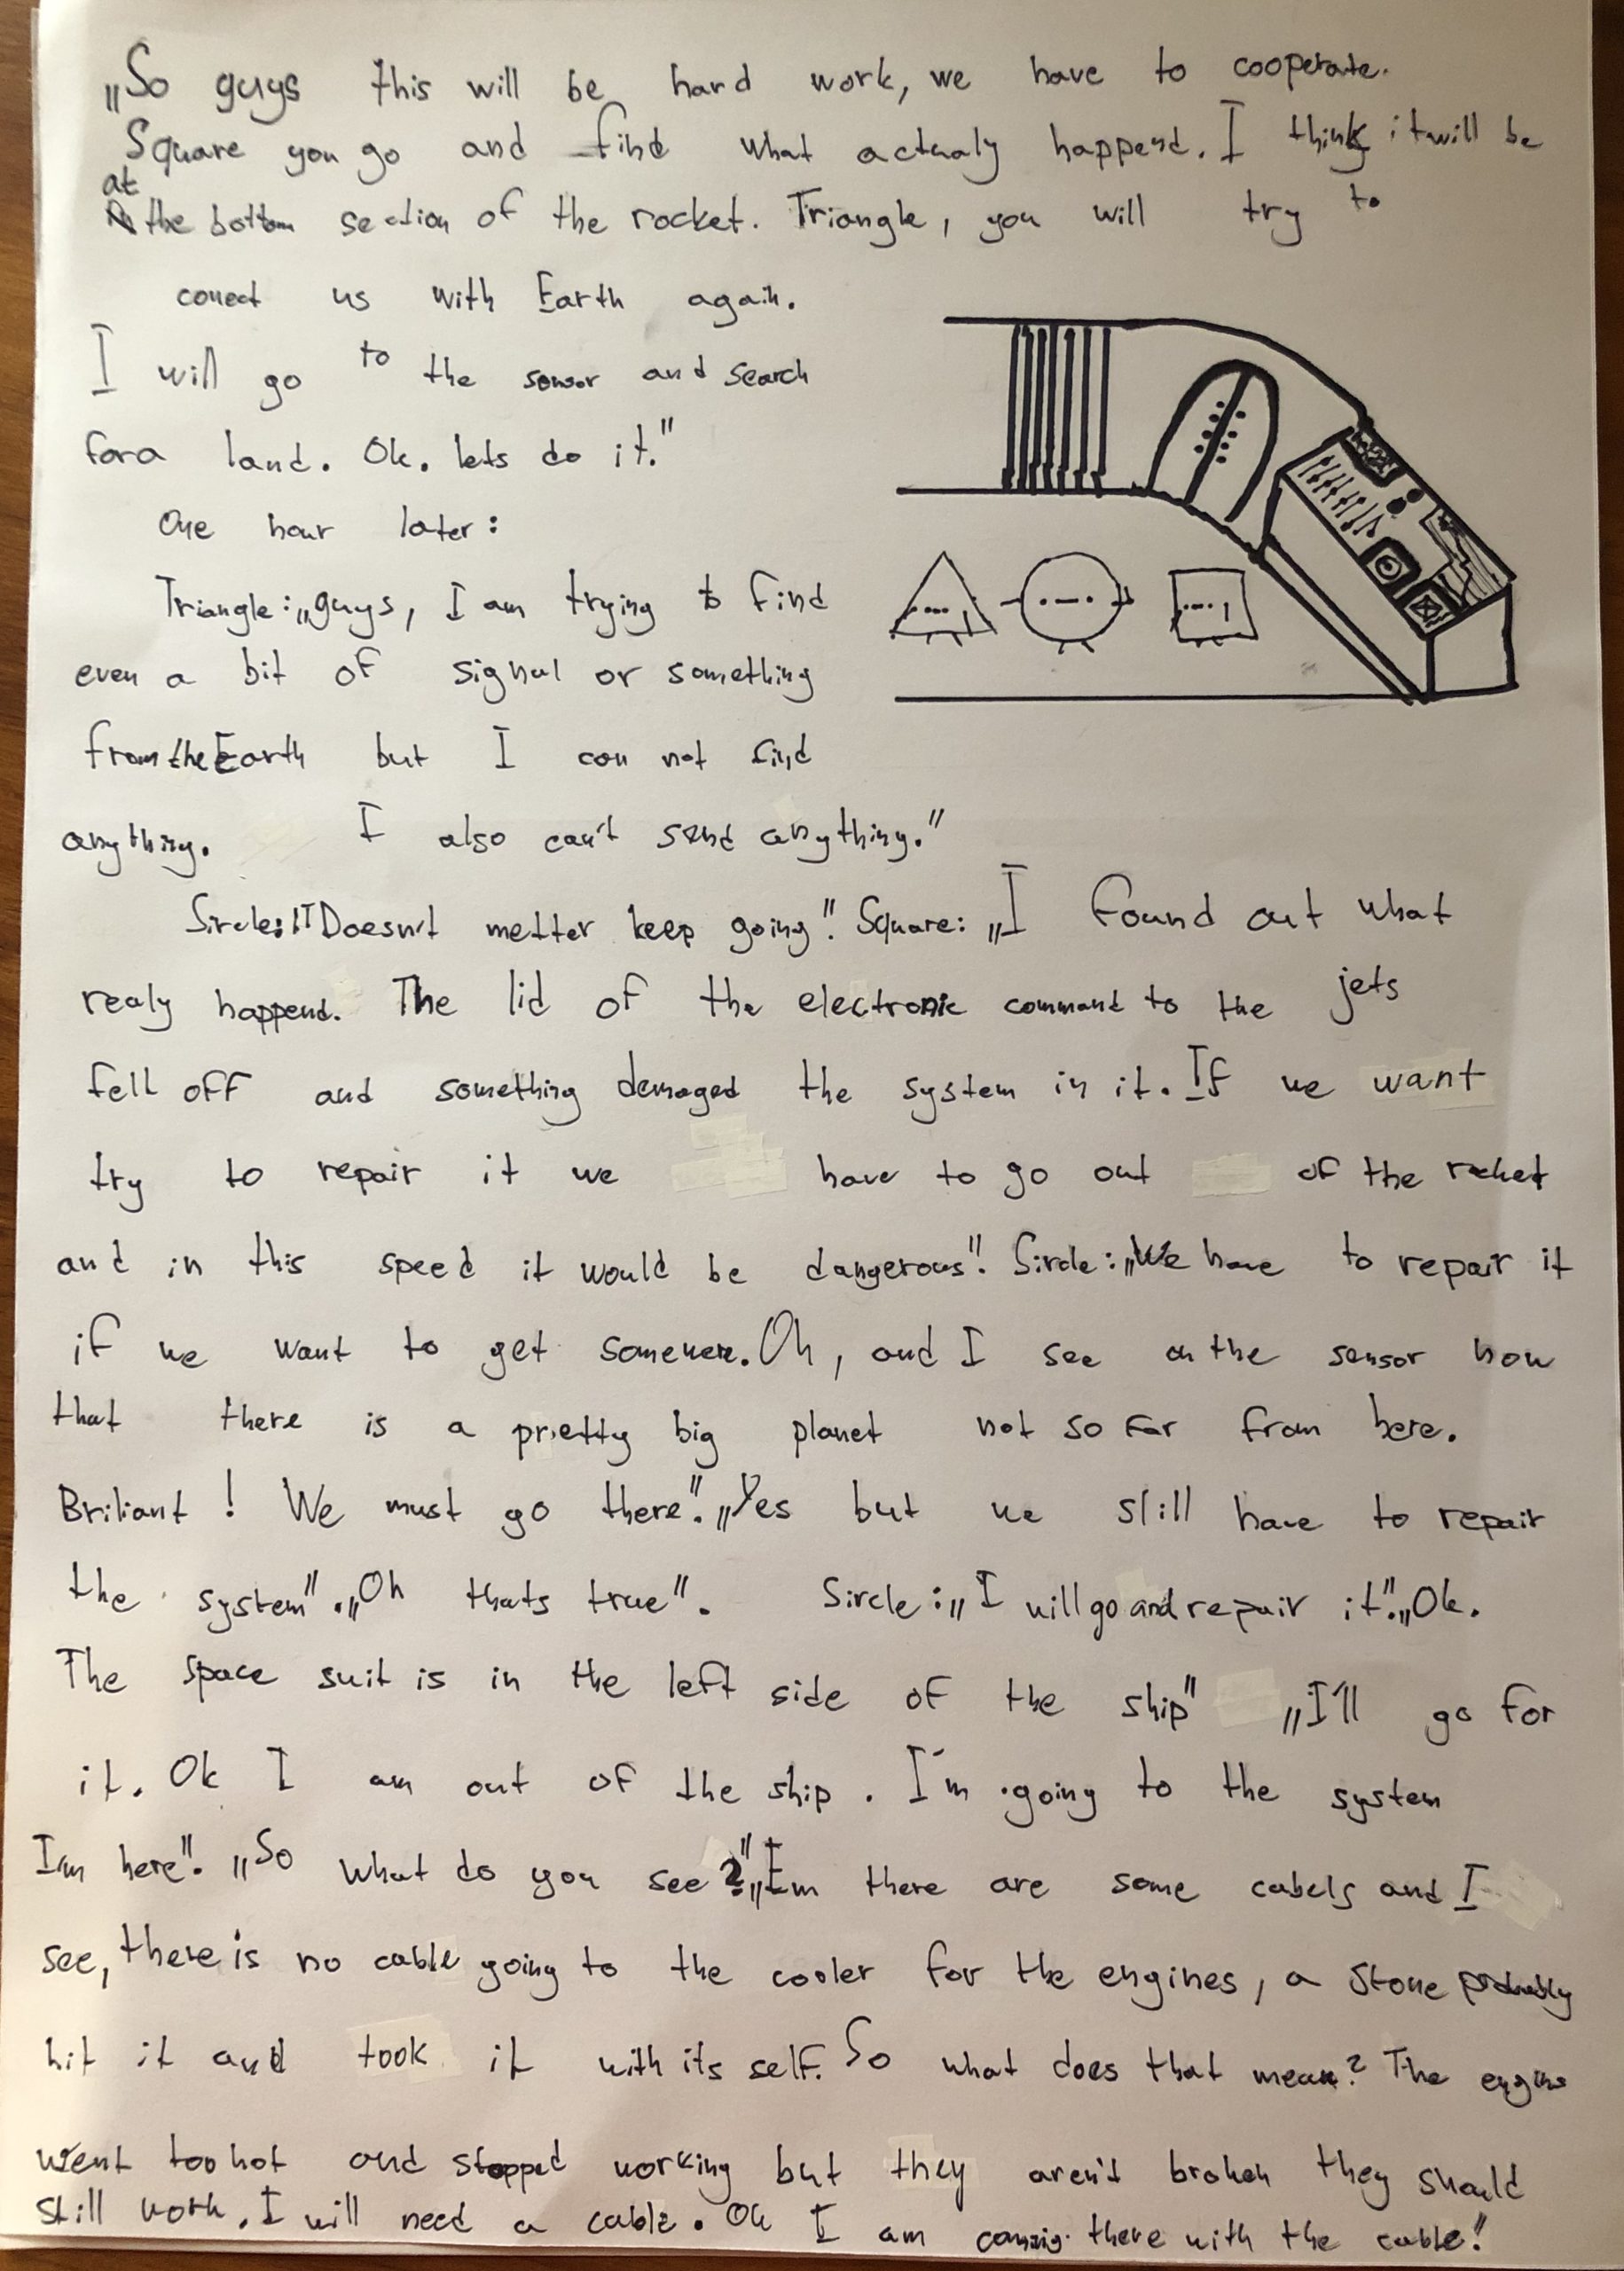 „So guys this will be hard work, we have to cooperate.
Square you go and find what actualy happend. I think it will be
at the bottom section of the rocket. Triangle, you will try to
conect us with Earth again.
I will go to the sensor and search
for a land. Ok. lets do it."
One hour later:
Triangle: „guys, I am trying to find
even a bit of signal or something
from the Earth but I can not find
anything. I also can't send anything."
Sircle: "Doesn't metter keep going". Square: „I found out what
realy happend. The lid of the electronic command to the jets
fell off and something demaged the system in it. If we want
try to repair it we have to go out of the rocket
and in this speed it would be dangerous". Sircle: „We have to repair it
if we want to get somewere. Oh, and I see on the sensor now
that there is a prietty big planet not so far from here.
Briliant! We must go there". „Yes but we still have to repair
the system". „Oh thats true". Sircle: „I will go and repair it". „Ok.
The space suit is in the left side of the ship" „I'll go for
it. Ok I am out of the ship. I'm going to the system
I'm here". „So what do you see?" „Em there are some cabels and I
see, there is no cable going to the cooler for the engines, a stone probably
hit it and took it with its self. So what does that mean? The engine
went too hot and stopped working but they aren't broken they should
still work. I will need a cable. Ok I am coming there with the cable!